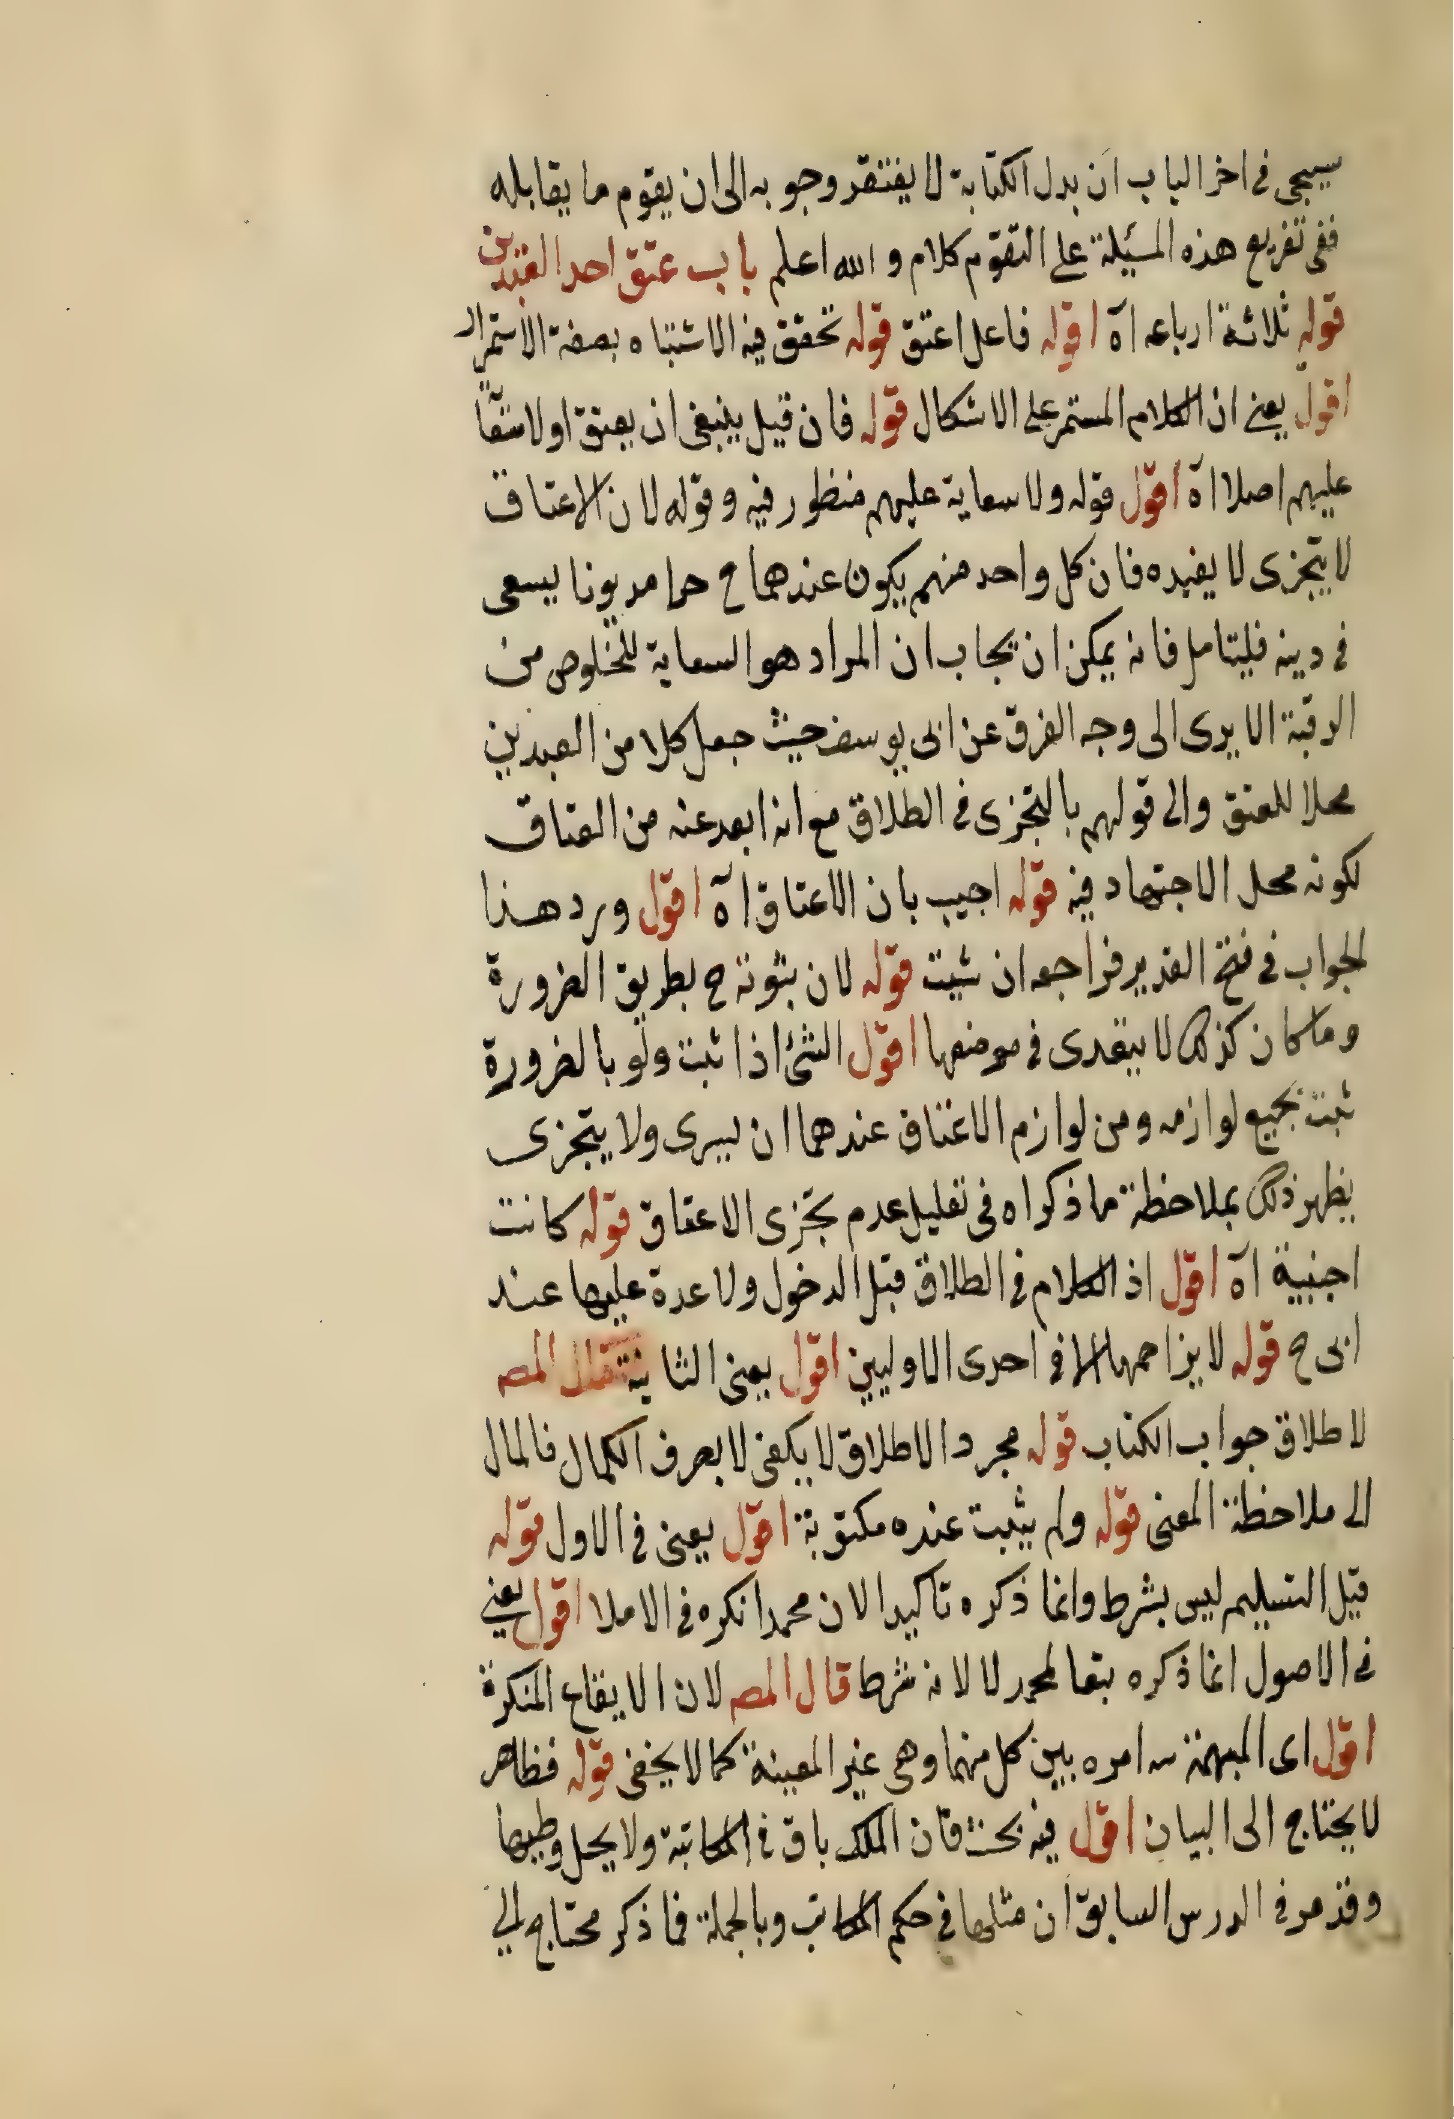 سيجى فى اخر الباب ان بدل الكتابة لا يفتقر وجوبه الى ان يقوم ما يقابله
ففى تفريع هذه المسئلة على التقوم كلام والله اعلم باب عتق احد العبدين
قوله ثلاثة ارباعه اه اقول فاعل اعتق قوله تحقق فيه الاشتباه بصفة الاستمرار
اقول يعنى ان الكلام المستمر على الاشكال قوله فان قيل ينبغى ان يعتق اولا
عليهم اصلا اه اقول قوله ولا سعاية عليهم منظور فيه وقوله لان الاعتاق
لا يتجزى لا يفيده فان كل واحد منهم يكون عندهما ح حرا مديونا يسعى
فى دينه فليتامل فانه يمكن ان يجاب ان المراد هو السعاية للتخلوص من
الرقبة الا يرى الى وجه الفرق عن ابى يوسف حيث جعل كلا من العبدين
محلا للعتق والى قولهم بالتجزى فى الطلاق مع انه ابعد عنه من العتاق
لكونه محل الاجتهاد فيه قوله اجيب بان الاعتاق اه اقول ورد هذا
الجواب فى فتح القدير فراجعه ان شيت قوله لان ثبوته ح بطريق الضرورة
وما كان كذلك لا يتعدى فى موضعها اقول الشئ اذا ثبت ولو بالضرورة
ثبت بجميع لوازمه ومن لوازم الاعتاق عندهما ان يسرى ولا يتجزى
يظهر ذلك بملاحظة ما ذكراه فى تعليل عدم تجزى الاعتاق قوله كانت
اجنبية اه اقول اذ الكلام فى الطلاق قبل الدخول ولا عدة عليها عند
ابى ح قوله لا يزاحمها الا فى احدى الاوليين اقول يعنى الثانية قال المص
لاطلاق جواب الكتاب قوله مجرد الاطلاق لا يكفى لا بصرف الكمال فالمال
الى ملاحظة المعنى قوله ولم يثبت عنده مكتوبة اقول يعنى فى الاول قوله
قبل التسليم ليس بشرط وانما ذكره تاكيدا لان محمدا نكره فى الاملا اقول يعنى
فى الاصول انما ذكره تبعا لمحمد لا لانه شرط قال المص لان الايقاع المنكرة
اقول اى المبهمة امره بين كل منهما وهى غير المعينة كما لا يخفى قوله فظاهر
لا يحتاج الى البيان اقول فيه بحث فان الملك باق فى المكاتبة ولا يحل وطيها
وقد مر فى الدرس السابق ان مثلها فى حكم المكاتب وبالجملة فما ذكر محتاج الى